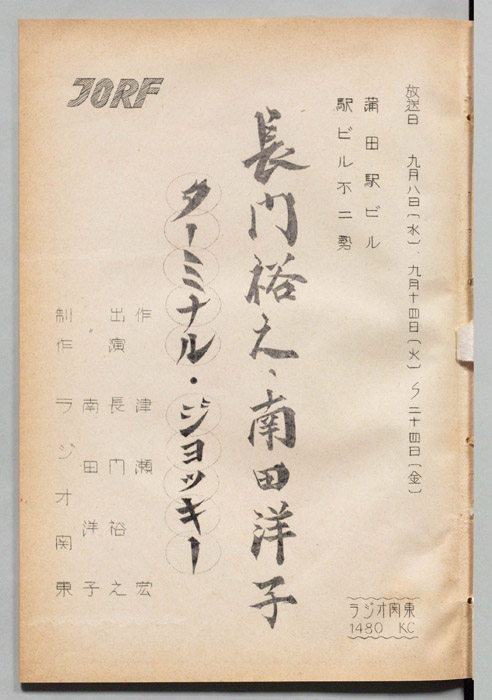 放送日 九月八日(水)、九月十四日(火)〜二十四日(金)
蒲田駅ビル
駅ビル不二
長門裕之、南田洋子
ターミナル・ジョッキー
JORF
作 津瀬宏
出演 長門裕之
南田洋子
制作 ラジオ関東
ラジオ関東
1480 KC